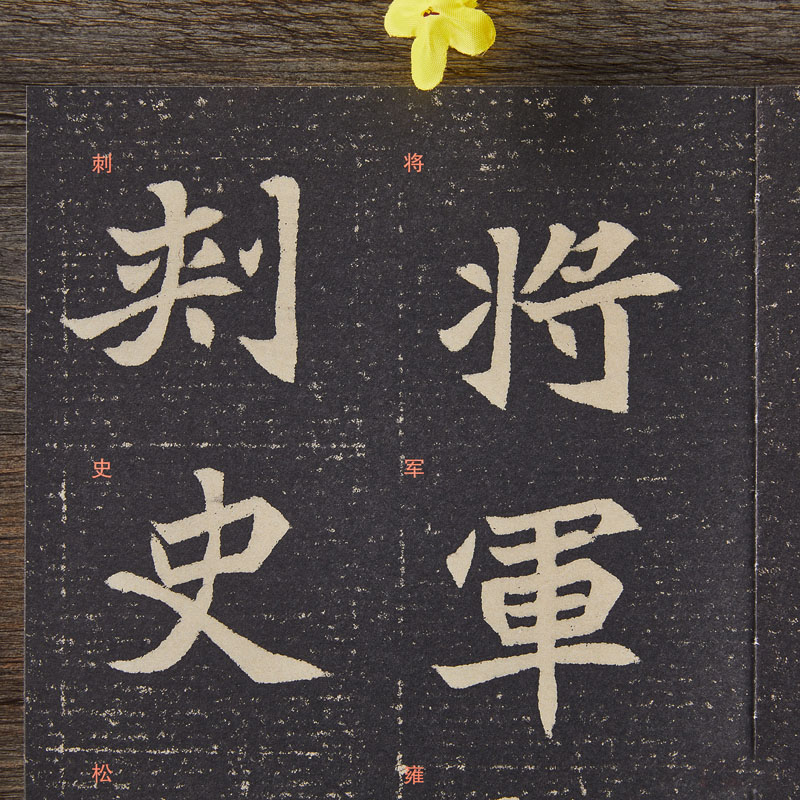 将軍
将
军
雍
刺史
刺
史
松